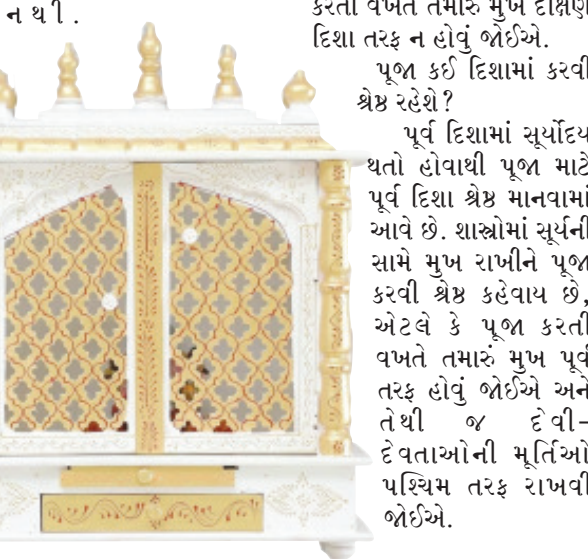 નથી.
કરતી વખતે તમારું મુખ દક્ષિણ
દિશા તરફ ન હોવું જોઈએ.
પૂજા કઈ દિશામાં કરવી
શ્રેષ્ઠ રહેશે?
પૂર્વ દિશામાં સૂર્યોદય
થતો હોવાથી પૂજા માટે
પૂર્વ દિશા શ્રેષ્ઠ માનવામાં
આવે છે. શાસ્ત્રોમાં સૂર્યની
સામે મુખ રાખીને પૂજા
કરવી શ્રેષ્ઠ કહેવાય છે,
એટલે કે પૂજા કરતી
વખતે તમારું મુખ પૂર્વ
તરફ હોવું જોઈએ અને
તેથી જ દેવી-
દેવતાઓની મૂર્તિઓ
પશ્ચિમ તરફ રાખવી
જોઈએ.